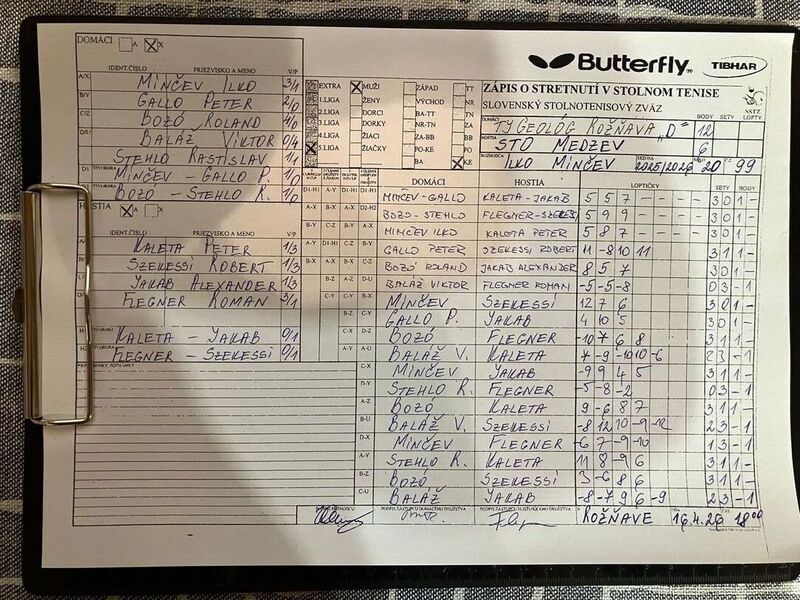 DOMÁCI A X
Butterfly
TIBHAR
IDENT.ČÍSLO PRIEZVISKO A MENO V/P
A/X MINČEV ILKO 3/1
B/Y GALLO PETER 2/0
C/Z BOZÓ ROLAND 4/0
D/U BALÁŽ VIKTOR 0/4
STEHLO RASTISLAV 1/1
D1 MINČEV - GALLO P. 1/0
BOZÓ - STEHLO R. 1/0
HOSTIA A X
IDENT.ČÍSLO PRIEZVISKO A MENO V/P
KALETA PETER 1/3
SZEKESSI ROBERT 1/3
JAKAB ALEXANDER 1/3
FLEGNER ROMAN 3/1
KALETA - JAKAB 0/1
FLEGNER - SZEKESSI 0/1
EXTRA MUŽI ZÁPAD TT
1.LIGA ŽENY VÝCHOD NR
2.LIGA DORCI BA-TT TN
3.LIGA DORKY NR-TN ZA
4.LIGA ŽIACI ZA-BB BB
5.LIGA ŽIAČKY PO-KE PO
BA KE
ZÁPIS O STRETNUTÍ V STOLNOM TENISE
SLOVENSKÝ STOLNOTENISOVÝ ZVÄZ
SSTZ
BODY SETY LOFTY
DOMÁCI TJ GEOLÓG ROŽŇAVA "D" 12
HOSTIA STO MEDZEV 6
ROZHODCA ILKO MINČEV SEZÓNA 2025/2026 KOLO 20 Č.Z. 99
DOMÁCI HOSTIA LOPTIČKY SETY BODY
MINČEV-GALLO KALETA-JAKAB 5 5 7 - - - - 3 0 1 -
BOZO-STEHLO FLEGNER-SZEKES 5 9 9 - - - - 3 0 1 -
MINČEV ILKO KALETA PETER 5 8 7 3 0 1 -
GALLO PETER SZEKESSI ROBERT 11 -8 10 11 3 1 1 -
BOZÓ ROLAND JAKAB ALEXANDER 8 5 7 3 0 1 -
BALÁŽ VIKTOR FLEGNER ROMAN -5 -5 -8 0 3 - 1
MINČEV SZEKESSI 12 7 6 3 0 1 -
GALLO P. JAKAB 4 10 5 3 0 1 -
BOZÓ FLEGNER -10 7 6 8 3 1 1 -
BALÁŽ V. KALETA 7 -9 -10 10 -6 2 3 - 1
MINČEV JAKAB -9 9 4 5 3 1 1 -
STEHLO R. FLEGNER -5 -8 -2 0 3 - 1
BOZÓ KALETA 9 -6 8 7 3 1 1 -
BALÁŽ V. SZEKESSI -8 12 10 -9 -12 2 3 - 1
MINČEV FLEGNER -6 7 -9 -10 1 3 - 1
STEHLO R. KALETA 11 8 -9 6 3 1 1 -
BOZÓ SZEKESSI 3 -6 8 6 3 1 1 -
BALÁŽ JAKAB -8 -7 9 6 -9 2 3 - 1
V ROŽŇAVE DŇA 16.4.26 ČAS 18 00